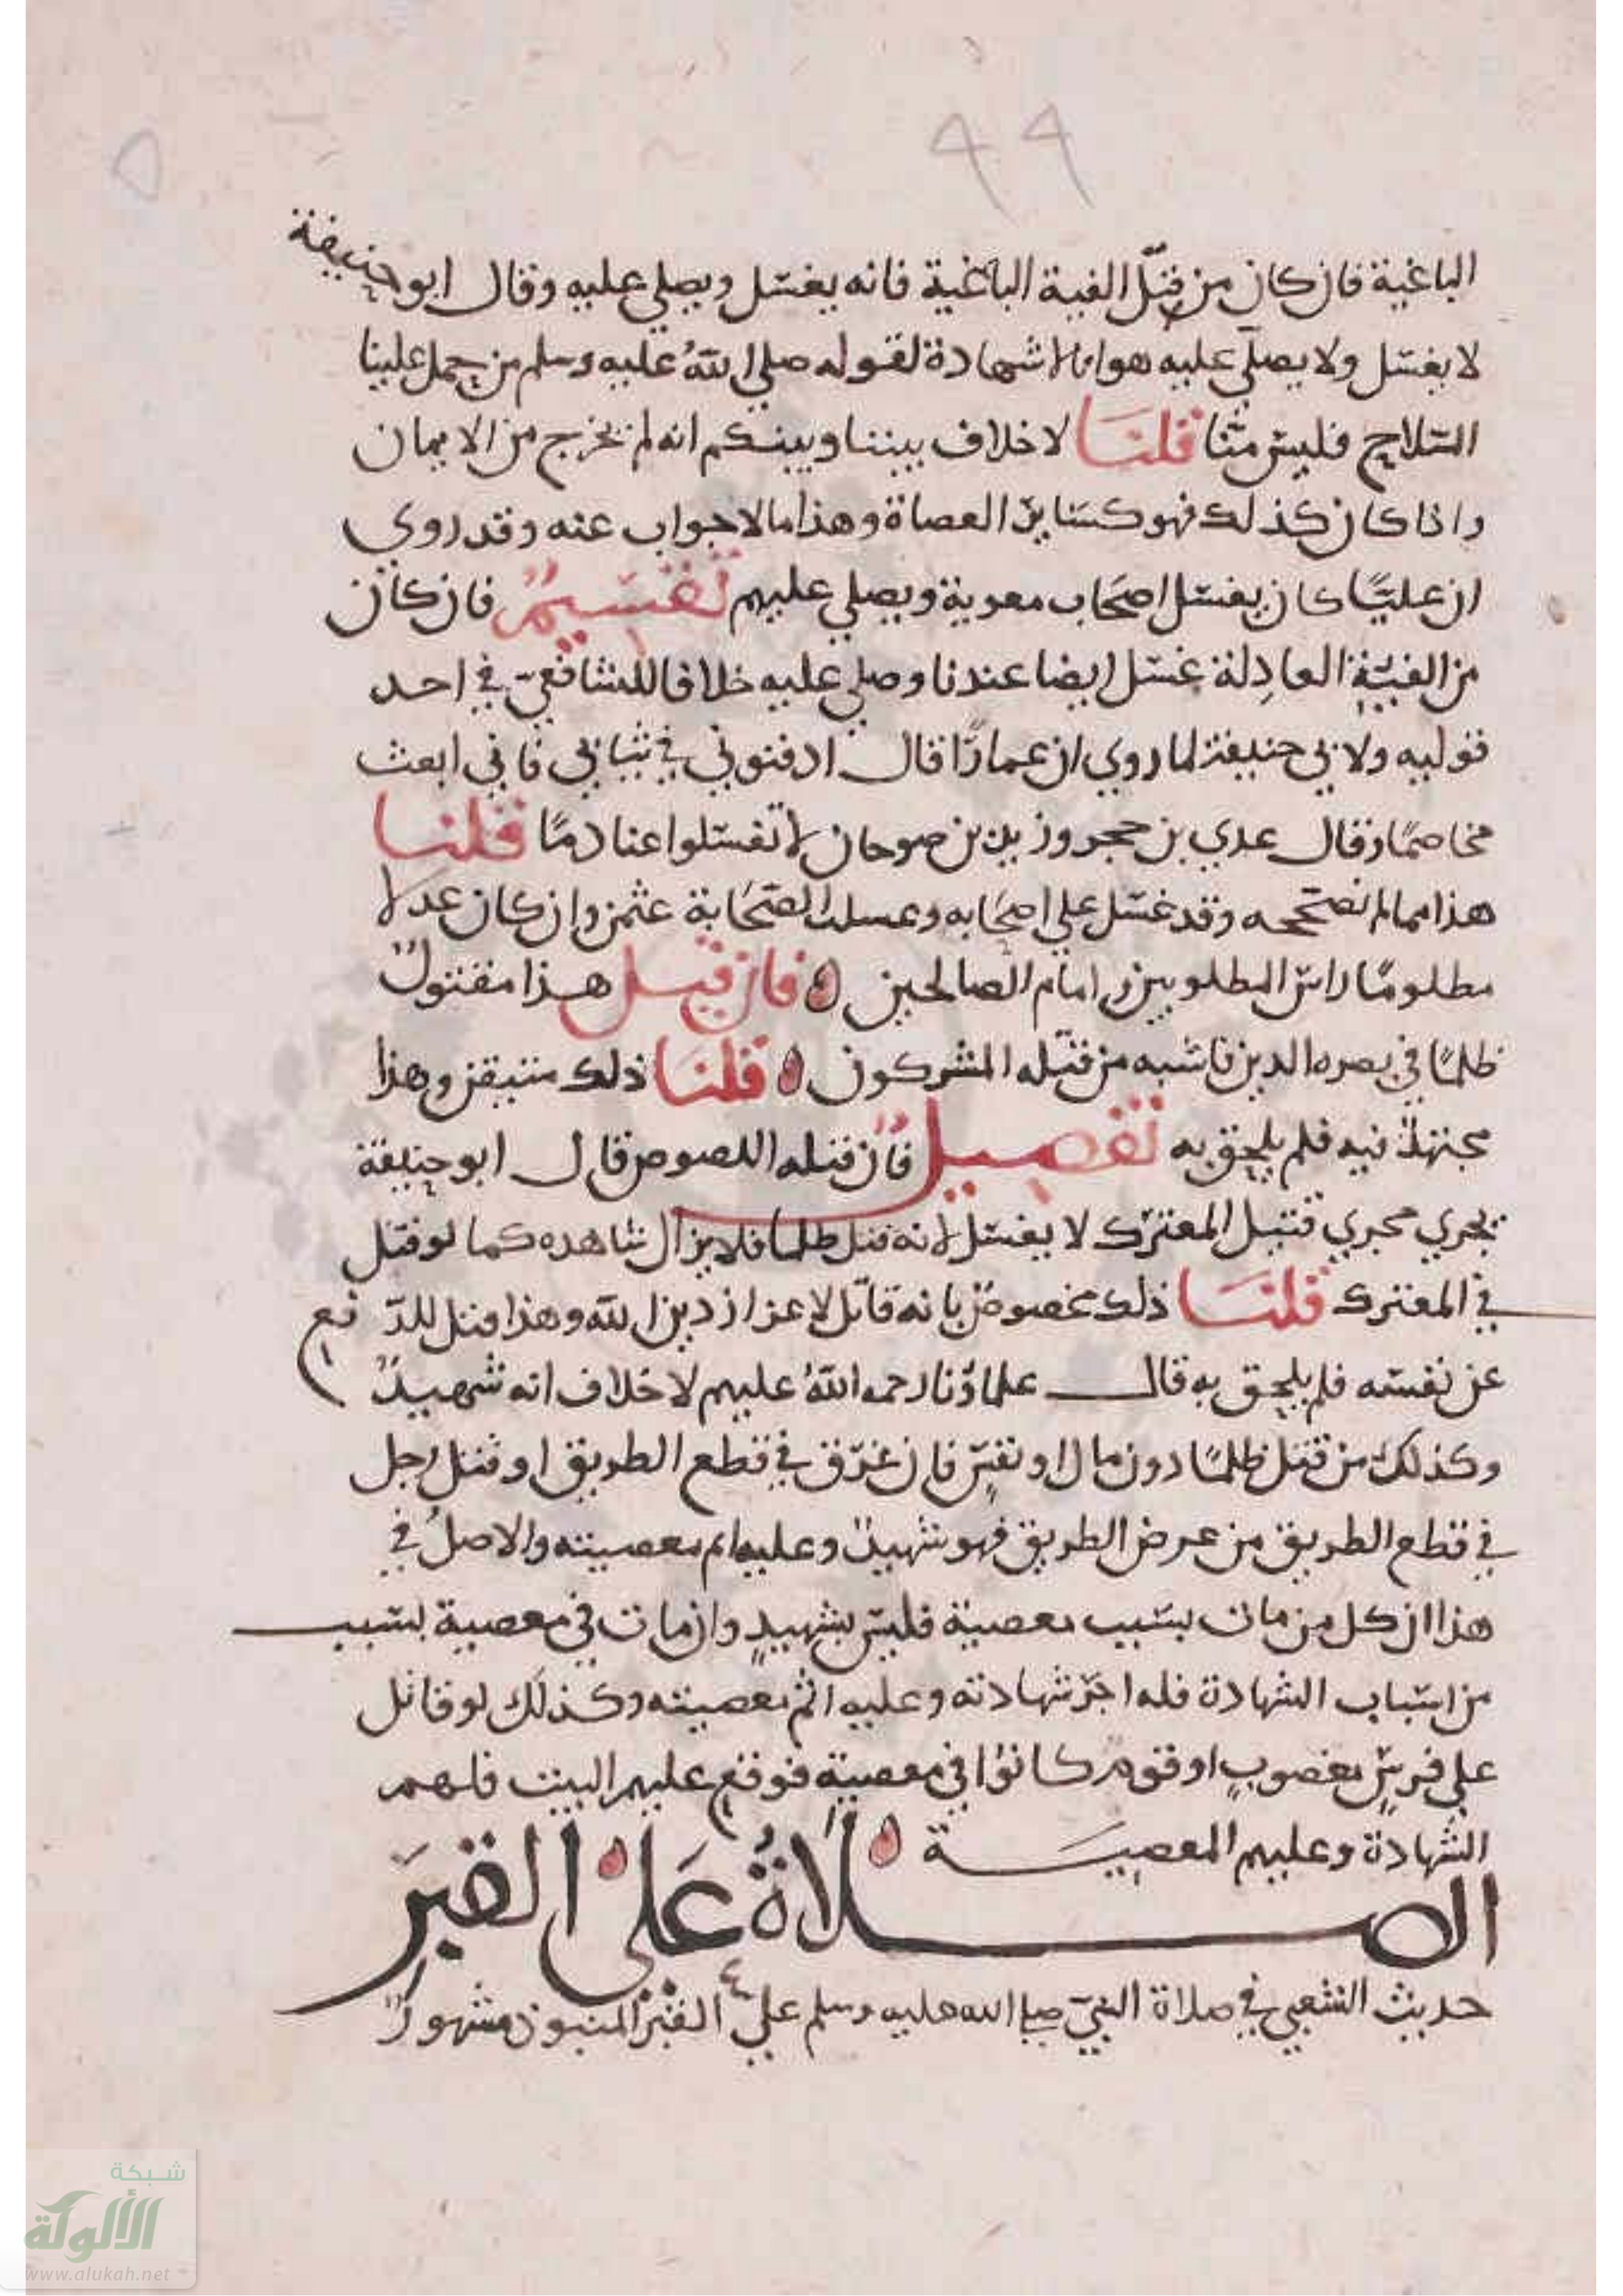 ٩٩
الباغية فان كان من قتل الفية الباغية فانه يغسل ويصلي عليه وقال ابو حنيفة
لا يغسل ولا يصلي عليه هوانا لا شهادة لقوله صلى الله عليه وسلم من حمل علينا
السلاح فليس منا قلنا لا خلاف بيننا وبينكم انه لم يخرج من الايمان
واذا كان كذلك فهو كساير العصاة وهذا ما لا جواب عنه وقد روي
ان عليا كان يغسل اصحاب معوية ويصلي عليهم تقسيم فان كان
من الفية العادلة غسل ايضا عندنا وصلي عليه خلافا للشافعي في احد
قوليه ولابي حنيفة لما روي ان عمارا قال ادفنوني في ثيابي فاني ابعث
مخاصما وقال عدي بن حجر وزيد بن صوحان لا تغسلوا عنا دما قلنا
هذا مما لم نصححه وقد غسل علي اصحابه وغسلت الصحابة عثمن وان كان عدلا
مظلوما راس المظلومين امام الصالحين فان قيل هذا مقتول
ظلما في نصره الدين فاشبه من قتله المشركون قلنا ذلك متيقن وهذا
مجتهد فيه فلم يلحق به تفصيل فان قتله اللصوص قال ابو حنيفة
يجري مجري قتيل المعترك لا يغسل لانه قتل ظلما فلا يزال شاهده كما لو قتل
في المعترك قلنا ذلك مخصوص بانه قاتل لاعزاز دين الله وهذا قتل للدفع
عن نفسه فلم يلحق به قال علماؤنا رحمه الله عليهم لا خلاف انه شهيد
وكذلك من قتل ظلما دون مال او نفس فان غرق في قطع الطريق او قتل رجل
في قطع الطريق من عرض الطريق فهو شهيد وعليه اثم معصيته والاصل في
هذا ان كل من مات بسبب معصية فليس بشهيد وان مات في معصية بسبب
من اسباب الشهادة فله اجر شهادته وعليه اثم معصيته وكذلك لو قاتل
علي فرس مغصوب او قوم كانوا في معصية فوقع عليهم البيت فلهم
الشهادة وعليهم المعصية
الصلاة على القبر
حديث الشعبي في صلاة النبي صلى الله عليه وسلم علي القبر المنبوذ مشهور
شبكة
الألوكة
www.alukah.net